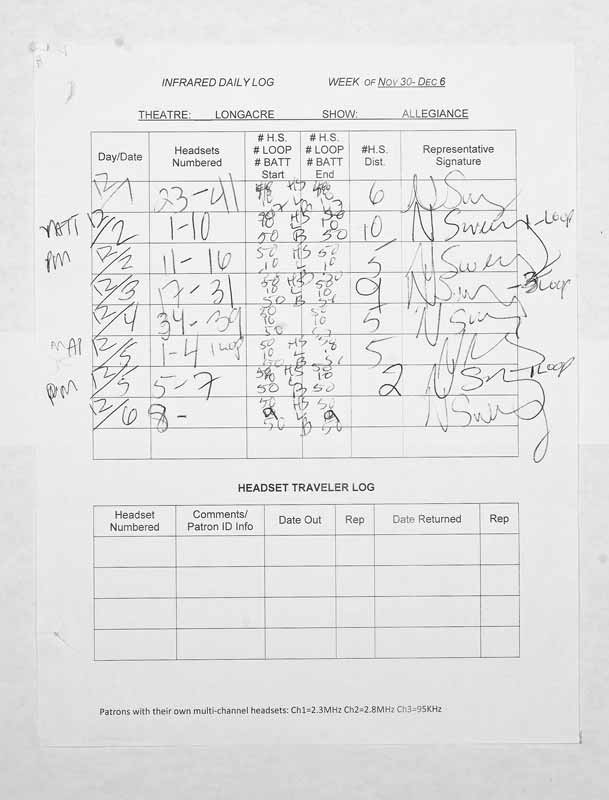 INFRARED DAILY LOG WEEK OF NOV 30- DEC 6
THEATRE: LONGACRE SHOW: ALLEGIANCE
Day/Date Headsets Numbered # H.S. # LOOP # BATT Start # H.S. # LOOP # BATT End #H.S. Dist. Representative Signature
12/1 23-41 HS 6
12/2 1-10 HS 50 50 B 50 10 1-LOOP
PM 12/2 11-16 50 HS 50 10 L 10 5
12/3 17-31 50 HS 10 L 50 B 9 -3 LOOP
12/4 34-39 50 50 10 10 50 5
12/5 1-4 1 LOOP 50 HS 10 L B 5
PM 12/5 5-7 50 HS 50 50 B 50 2 1 LOOP
12/6 8- 50 HS 50 9 L 9 50 B 50
HEADSET TRAVELER LOG
Headset Numbered Comments/ Patron ID Info Date Out Rep Date Returned Rep
Patrons with their own multi-channel headsets: Ch1=2.3MHz Ch2=2.8MHz Ch3=95KHz